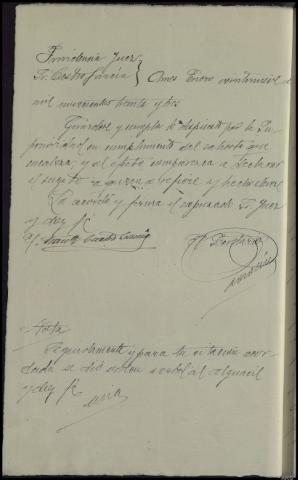 Providencia Juez
Sr. Castro García } Ames Enero veintinueve de
mil novecientos treinta y tres
Guárdese y cumpla lo dispuesto por la Su-
perioridad en cumplimiento del exhorto que
encabeza; y al efecto comparezca a declarar
el sugeto a quien se refiere y hecho
Lo acordó y firma el expresado Sr. Juez
y doy fé
Castro García
Nota
Seguidamente y para la citación acor-
dada se dió orden verbal al alguacil
y doy fé